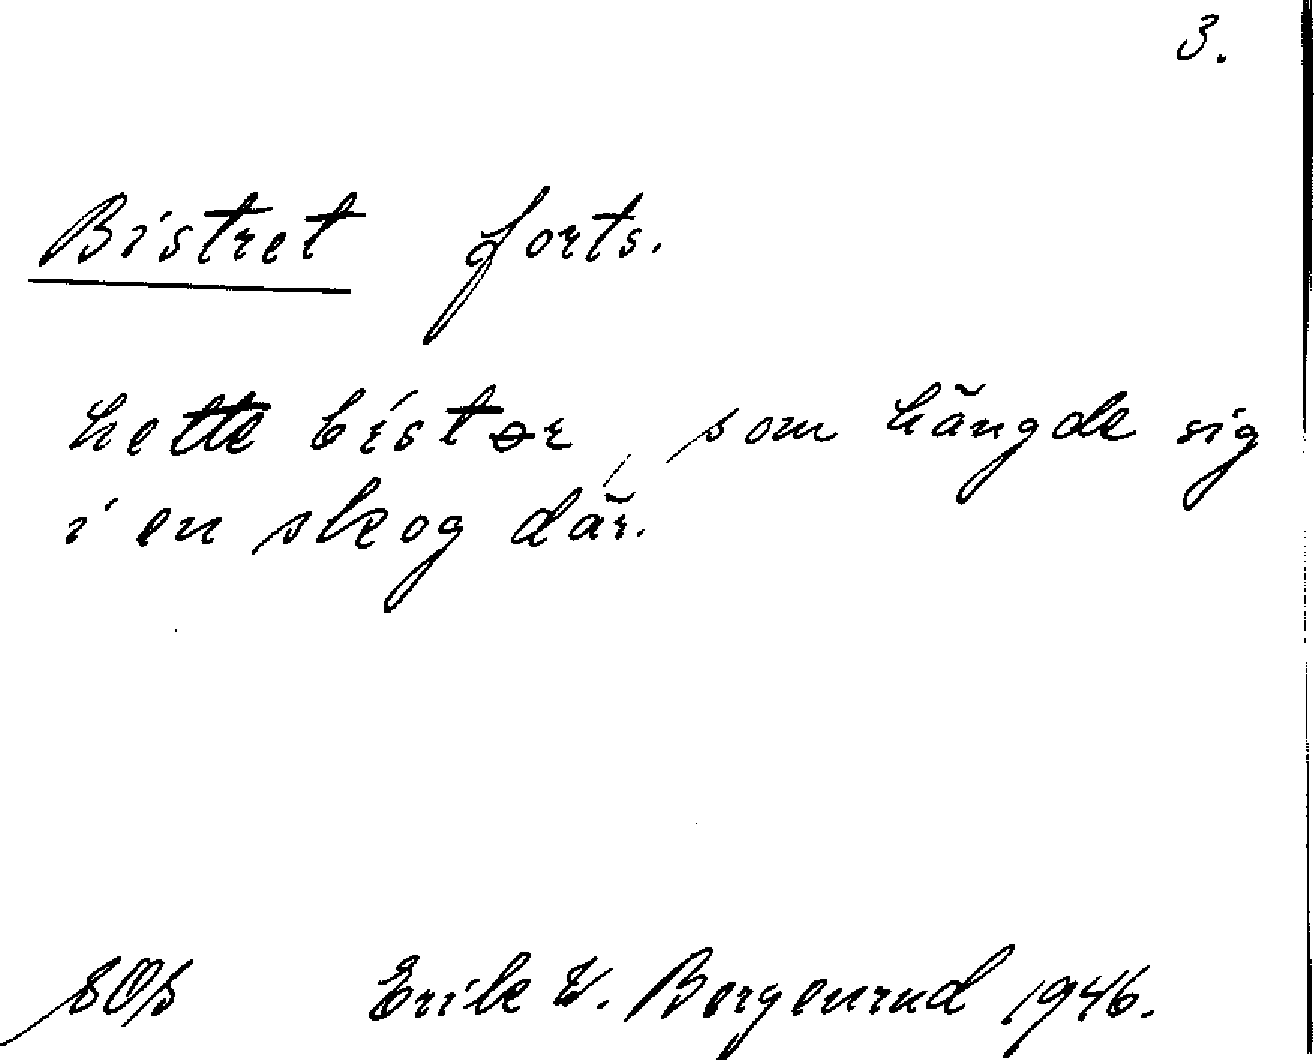 3.
Bistret forts.
hette bister, som hängde sig
i en skog där.
Erik W. Bergenrud 1946.